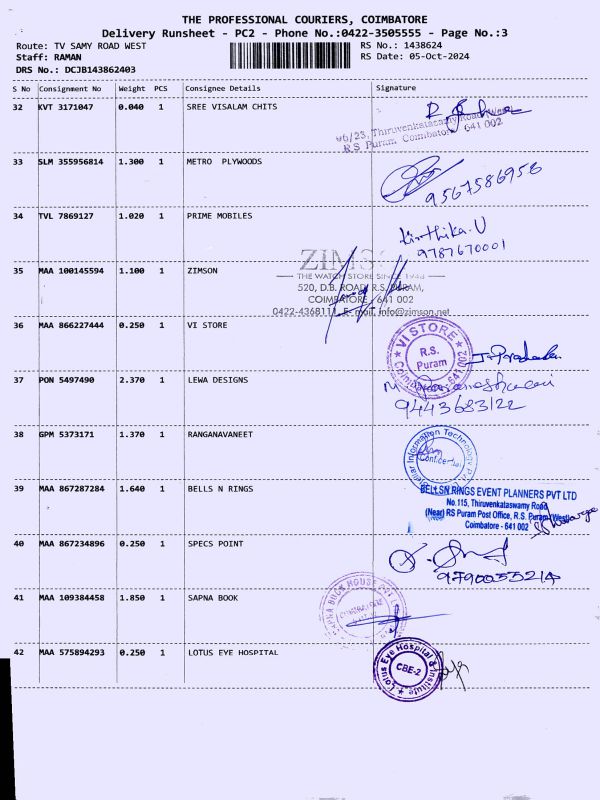 THE PROFESSIONAL COURIERS, COIMBATORE
Delivery Runsheet - PC2 - Phone No.:0422-3505555 - Page No.:3
Route: TV SAMY ROAD WEST RS No.: 1438624
Staff: RAMAN RS Date: 05-Oct-2024
DRS No.: DCJB143862403
S No Consignment No Weight PCS Consignee Details Signature
32 KVT 3171047 0.040 1 SREE VISALAM CHITS
96/23, Thiruvenkataswamy Road West
R S Puram, Coimbatore - 641 002
33 SLM 355956814 1.300 1 METRO PLYWOODS
9567586956
34 TVL 7869127 1.020 1 PRIME MOBILES
Kirthika.U
9787670001
35 MAA 100145594 1.100 1 ZIMSON
ZIMSON
THE WATCH STORE SINCE 1948
520, D.B. ROAD, R.S. PURAM,
COIMBATORE 641 002
0422-4368111, E-mail. info@zimson.net
36 MAA 866227444 0.250 1 VI STORE
VI STORE
R.S.
Puram
Coimbatore 641 002
37 PON 5497490 2.370 1 LEWA DESIGNS
9443683122
38 GPM 5373171 1.370 1 RANGANAVANEET
Information Technology
Confidential
39 MAA 867287284 1.640 1 BELLS N RINGS
BELLSN RINGS EVENT PLANNERS PVT LTD
No.115, Thiruvenkataswamy Road
(Near) RS Puram Post Office, R.S. Puram (West)
Coimbatore - 641 002
40 MAA 867234896 0.250 1 SPECS POINT
41 MAA 109384458 1.850 1 SAPNA BOOK
SAPNA BOOK HOUSE PVT LTD
COIMBATORE
42 MAA 575894293 0.250 1 LOTUS EYE HOSPITAL
Lotus Eye Hospital &
CBE-2